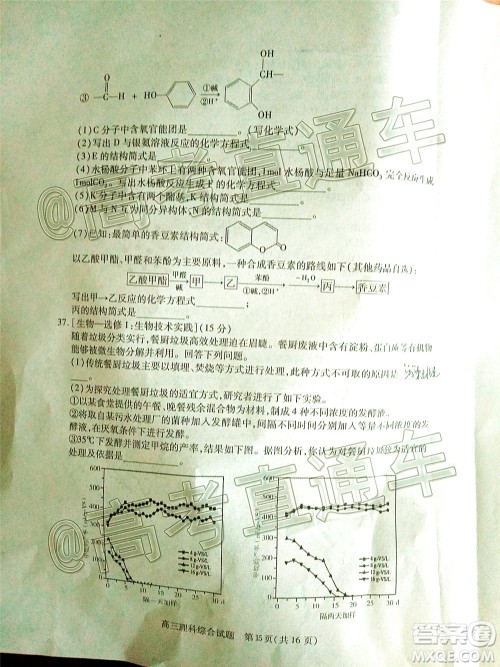 ③ O C H + HO ①碱 ②H⁺ OH CH— OH
(1)C分子中含氧官能团是。(写化学式)
(2)写出D与银氨溶液反应的化学方程式。
(3)E的结构简式:。
(4)水杨酸分子中苯环上有两种含氧官能团,1mol水杨酸与足量NaHCO₃完全反应生成
1molCO₂,写出水杨酸反应生成F的化学方程式。
(5)K分子中含有两个酯基,K结构简式。
(6)M与N互为同分异构体,N的结构简式。
(7)已知:最简单的香豆素结构简式: O O
以乙酸甲酯、甲醛和苯酚为主要原料,一种合成香豆素的路线如下(其他药品自选):
乙酸甲酯 甲醛 碱 甲 乙 苯酚 ①碱,②H⁺ −H₂O 丙 香豆素
写出甲→乙反应的化学方程式;
丙的结构简式:。
37.[生物—选修1:生物技术实践](15分)
随着垃圾分类实行,餐厨垃圾高效处理迫在眉睫。餐厨废液中含有淀粉、蛋白质等有机物
能够被微生物分解并利用。回答下列问题。
(1)传统餐厨垃圾主要以填埋、焚烧等方式进行处理,此种方式不可取的原因是
。
(2)为探究处理餐厨垃圾的适宜方式,研究者进行了如下实验:
①以某食堂提供的午餐、晚餐残余水解成小分子物质为原料,制成4种不同浓度的发酵液。
②将取自某污水处理厂的菌种加入发酵液中,间隔不同时间向其中加入等量同浓度的发
酵液,在厌氧条件下进行发酵。
③35℃下发酵并测定甲烷的产率,结果如下。据图分析,你认为对餐厨垃圾较为适宜的
处理及依据是。
600
500
400
300
200
100
0
0 5 10 15 20 25 30 d
隔一天加样
4 g·VS/L
8 g·VS/L
12 g·VS/L
16 g·VS/L
600
500
400
300
200
100
0
0 5 10 15 20 25 30 d
隔两天加样
4 g·VS/L
8 g·VS/L
12 g·VS/L
16 g·VS/L
高三理科综合试题 第15页(共16页)
@高考直通车
@高考直通车
答案圈
MXQE.COM